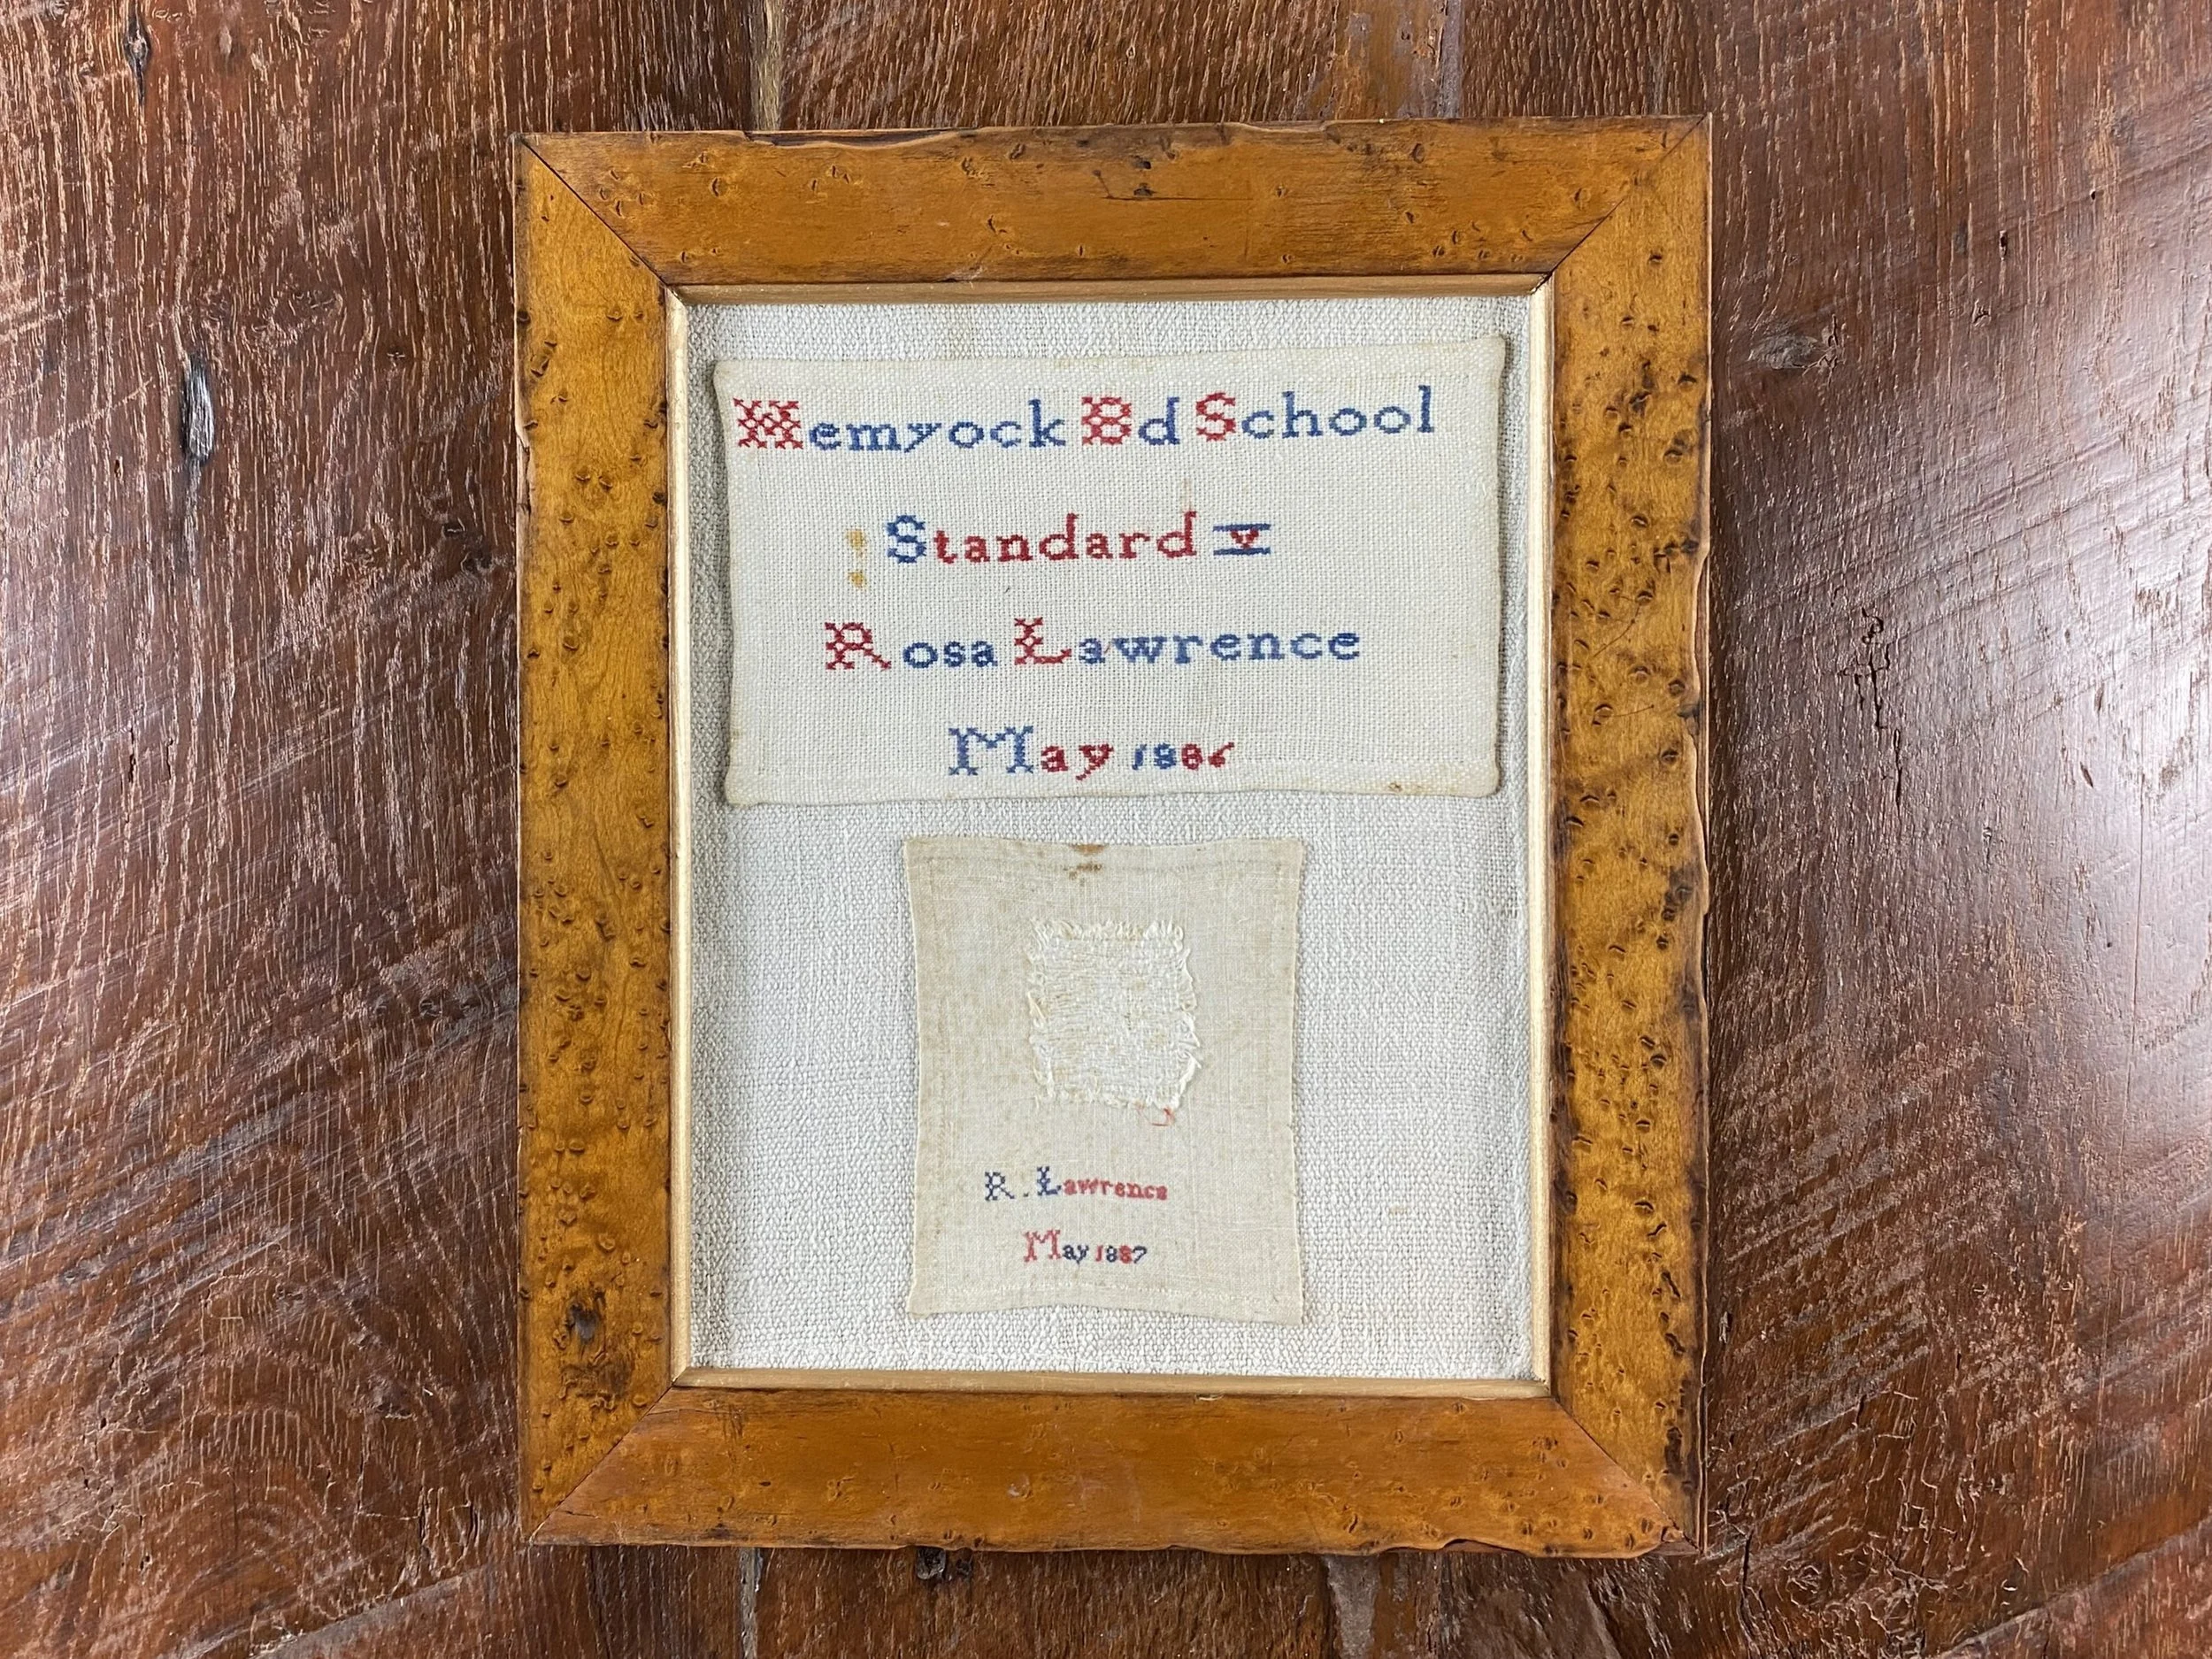 Hemyock Bd School
Standard V
Rosa Lawrence
May 1886
R. Lawrence
May 1887